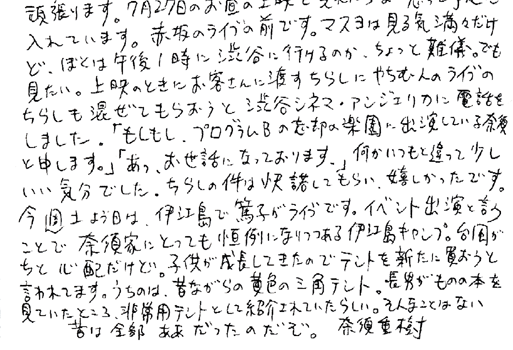 頑張ります。7月27日のお昼の上映と
入れています。赤坂のライブの前です。マスヨは見る気満々だけ
ど、ぼくは午後1時に渋谷に行けるのか、ちょっと難儀。でも
見たい。上映のときにお客さんに渡すちらしにやちむん人のライブの
ちらしも混ぜてもらおうと渋谷シネマ・アンジェリカに電話を
しました。「もしもし、プログラムBの忘却の楽園に出演している奈須
と申します。」「あっ、お世話になっております。」何かいつもと違って少し
いい気分でした。ちらしの件は快諾してもらい、嬉しかったです。
今週土よう日は、伊江島で篤子がライブです。イベント出演と言う
ことで奈須家にとっても恒例になりつつある伊江島キャンプ。台風が
ちと心配だけど。子供が成長してきたのでテントを新たに買おうと
言われてます。うちのは、昔ながらの黄色の三角テント。長男がものの本を
見ていたところ、非常用テントとして紹介されていたらしい。そんなことはない
昔は全部ああだったのだぞ。 奈須重樹